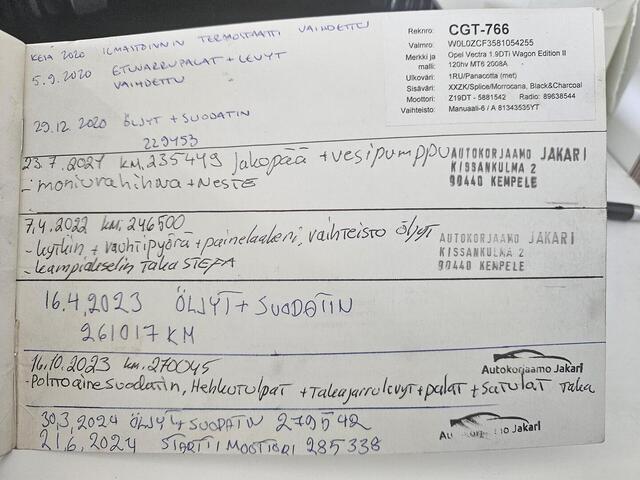 KESÄ 2020 ILMASTOINNIN TERMOSTAATTI VAIHDETTU
5.9.2020 ETUJARRUPALAT + LEVYT
VAIHDETTU
29.12.2020 ÖLJYT + SUODATIN
229453
Reknro: CGT-766
Valmro: W0L0ZCF3581054255
Merkki ja Opel Vectra 1.9DTi Wagon Edition II
malli: 120hv MT6 2008A
Ulkoväri: 1RU/Panacotta (met)
Sisäväri: XXZK/Splice/Morrocana, Black&Charcoal
Moottori: Z19DT - 5881542 Radio: 89638544
Vaihteisto: Manuaali-6 / A 81343535YT
23.7.2021 KM.235449 Jakopää + vesipumppu
- moniurahihna + NESTE
AUTOKORJAAMO JAKARI
KISSANKULMA 2
90440 KEMPELE
7.4.2022 km. 246500
- kytkin + vauhtipyörä + painelaakeri, vaihteisto öljyt
- kampiakselin TAKA STEFA
AUTOKORJAAMO JAKARI
KISSANKULMA 2
90440 KEMPELE
16.4.2023 ÖLJYT + SUODATIN
261017 KM
16.10.2023 km. 270045
- Polttoainesuodatin, Hehkutulpat + takajarrulevyt + palat + satulat taka
Autokorjaamo Jakari
30.3.2024 ÖLJYT + SUODATIN 279542
21.6.2024 STARTTIMOOTTORI 285338